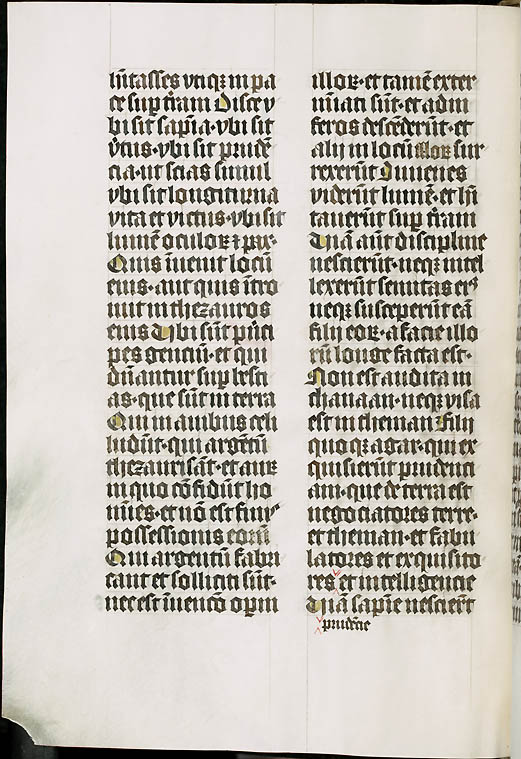 hītasses vtiqꝫ in pa
ce sup t̄ram Disce v
bi sit sapīa · vbi sit
v̄tus · vbi sit prudē
cia · ut scias simul
vbi sit longiturnia
vita et victus · vbi sit
lumē oculoꝝ ⁊ pax ·
Quis inuenit locū
eius · aut quis ītro
iuit in thezauros
eius Vbi sūt pⁱnci
pes genciū · et qui
dn̄antur sup besti
as · que sūt in terra
Qui in auibus celi
ludūt · qui argētū
thezaurisāt · et auꝝ
in quo cōfidūt ho
mīes · et nō est finis
possessionis eorū
Qui argentū fabri
cant et solliciti sūt ·
nec est inuencō opm̄
illoꝝ · et tamē exter
mīati sūt · et ad in
feros descēderūt · et
alij in locū illoꝝ sur
rexerūt Iuuenes
viderūt lumē · et hī
tauerūt sup t̄ram
Viā aūt discipline
nescierūt · neqꝫ intel
lexerūt semitas eiꝰ
neqꝫ susceperūt eā
filij eoꝝ · a facie illo
rū longe facta est ·
Non est audita in
chanaan · neqꝫ visa
est in theman ⁊ filij
quoqꝫ agar · qui ex
quisierūt prudenti
am · que de terra est
negociatores terre ·
et theman · et fabu
latores et exquisito
res et intelligencie
Viā sapīe nescierūt
prudēcie